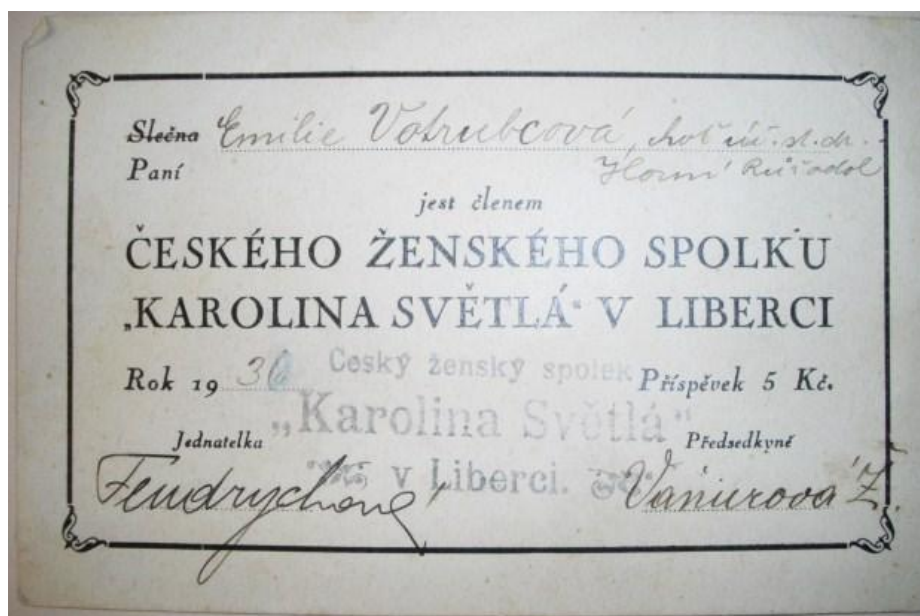 Slečna Emilie Votrubcová, choť úř. st. dr.
Paní Horní Růžodol
jest členem
ČESKÉHO ŽENSKÉHO SPOLKU
„KAROLINA SVĚTLÁ“ V LIBERCI
Rok 1936 Příspěvek 5 Kč.
Český ženský spolek
„Karolina Světlá“
v Liberci.
Jednatelka Předsedkyně
Fendrychová Vaňurová Ž.